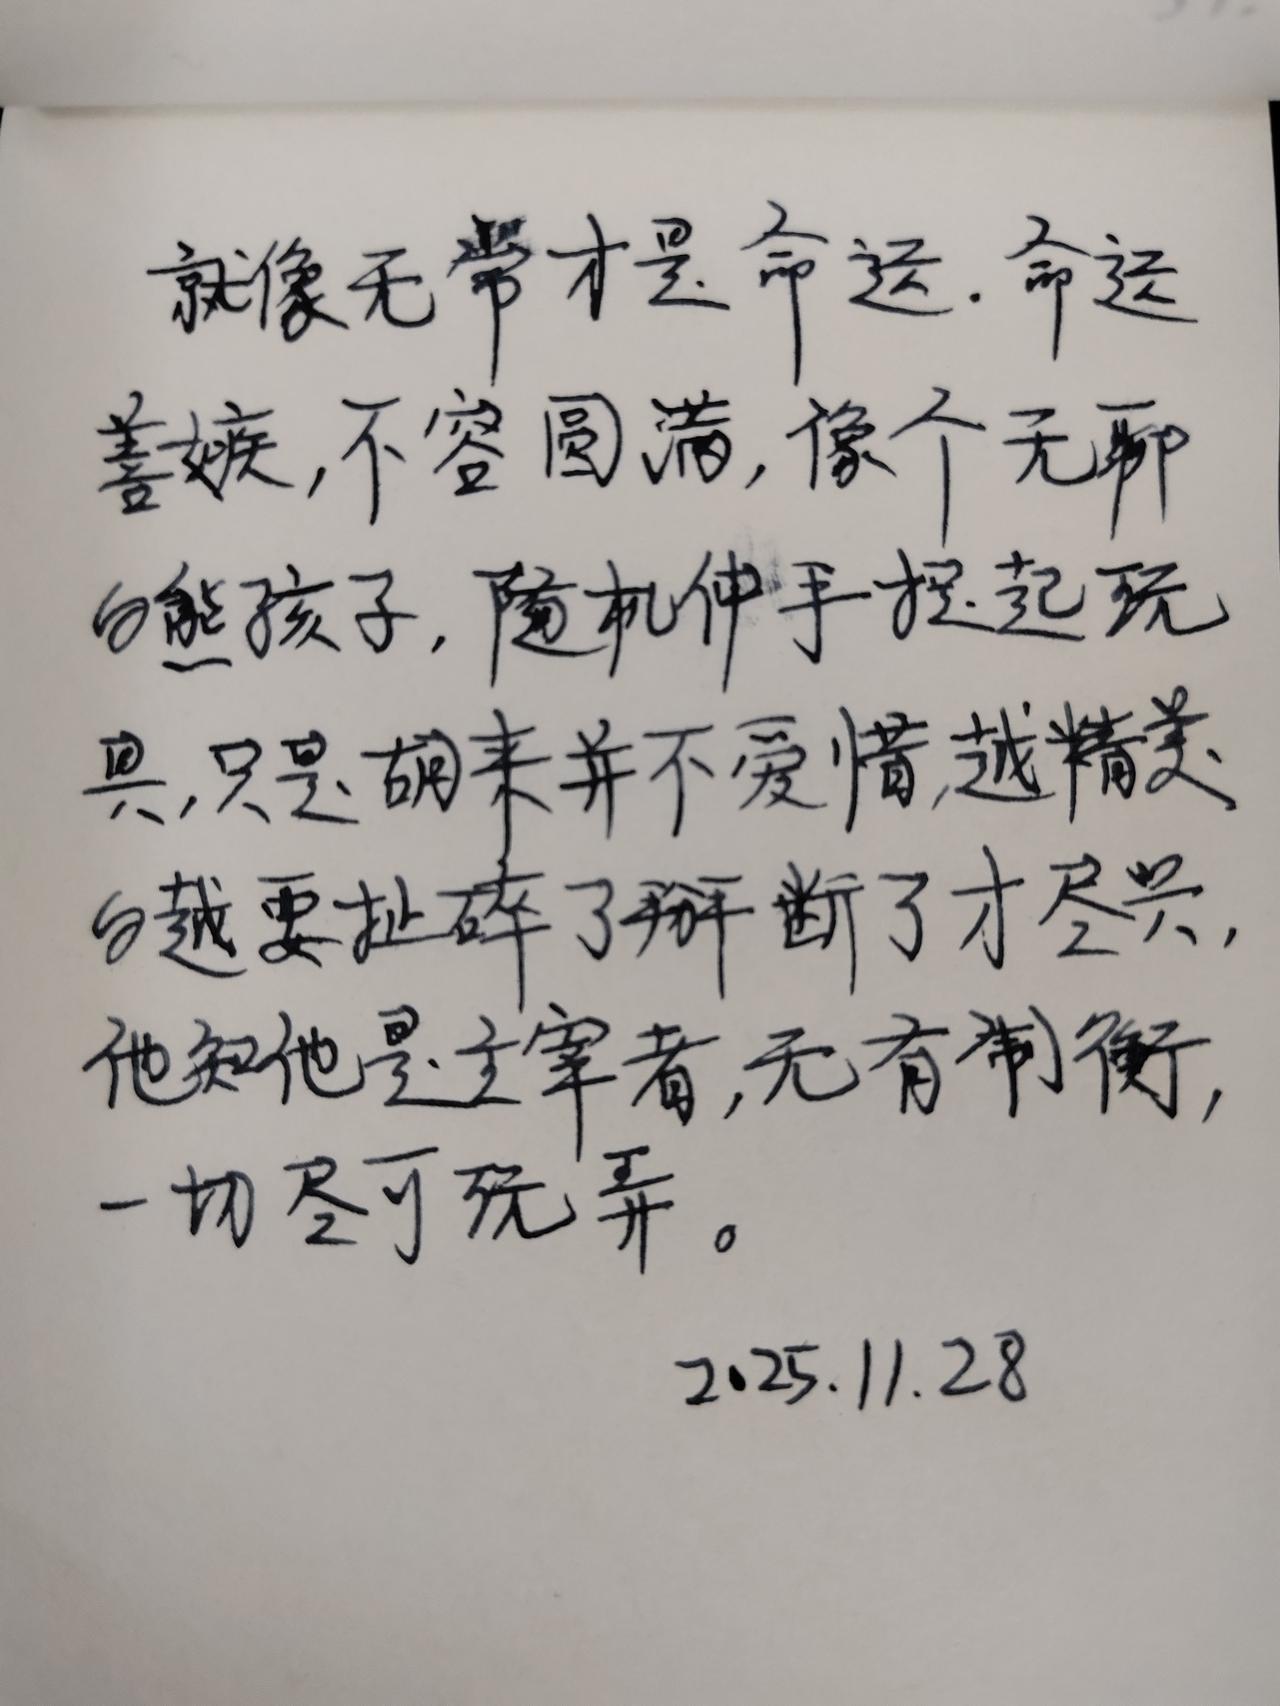 就像无常才是命运.命运
善嫉,不容圆满,像个无聊
的熊孩子,随机伸手捉起玩
具,只是胡来并不爱惜,越精美
的越要扯碎了掰断了才尽兴,
他知他是主宰者,无有制衡,
一切尽可玩弄。
2025.11.28